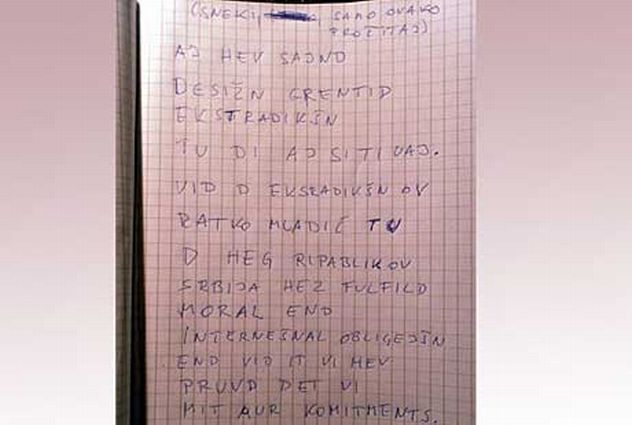 (SNEKI, SAMO OVAKO
PROČITAJ)
AJ HEV SAJND
DESIŽN GRENTID
EKSTRADIKŠN
TU DI AJ SI TI VAJ.
VID D EKSRADIKŠN OV
RATKO MLADIĆ TU
D HEG RIPABLIK OV
SRBIJA HEZ FULFILD
MORAL END
INTERNEŠNAL OBLIGEJŠN
END VID IT VI HEV
PRUVD DET VI
MIT AUR KOMITMENTS.